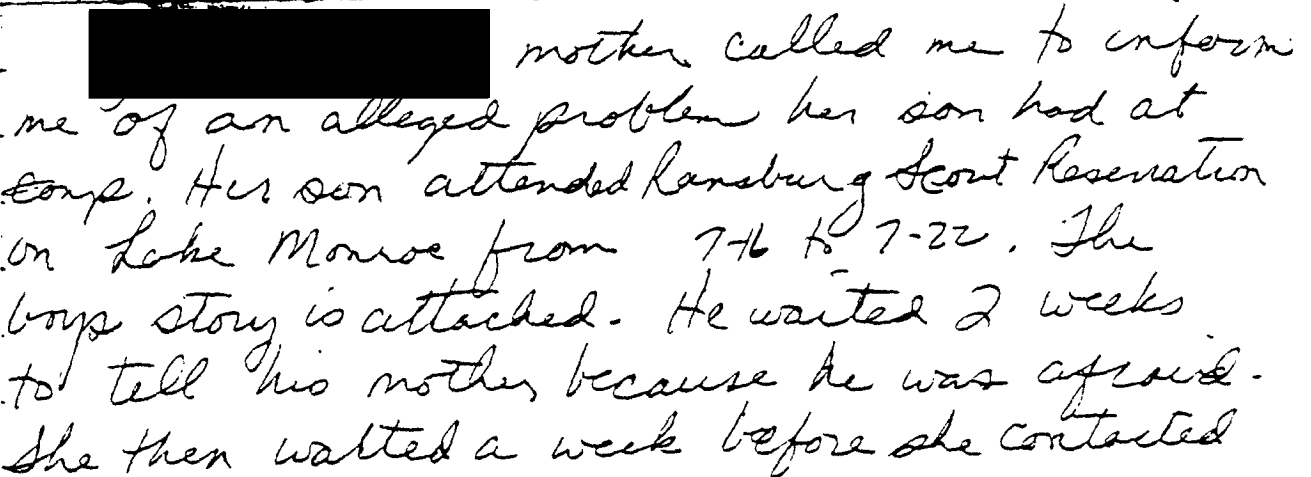 mother called me to inform
me of an alleged problem her son had at
camp. Her son attended Ransburg Scout Reservation
on Lake Monroe from 7-16 to 7-22. The
boys story is attached. He waited 2 weeks
to tell his mother because he was afraid.
She then waited a week before she contacted